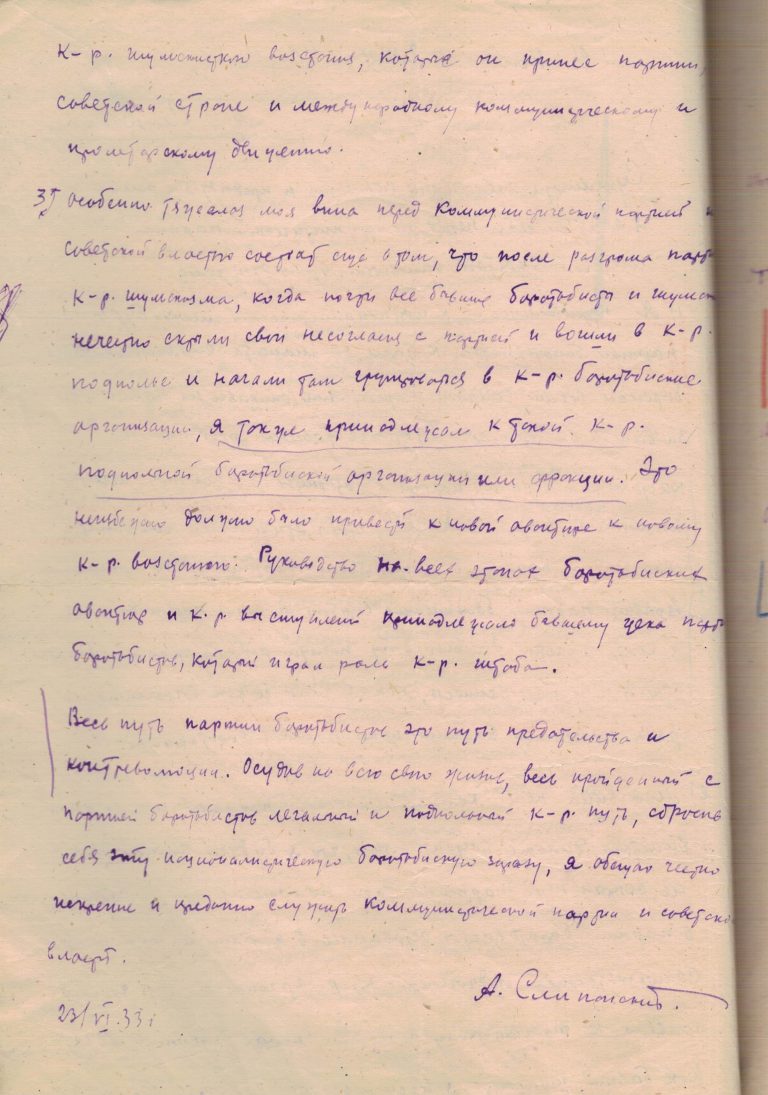 к-р. шумскистского возстания, которые он принес партии,
советской стране и международному коммунистическому и
пролетарскому движению.
3) Особенно тяжелая моя вина перед Коммунистической партией и
советской властью состоит еще в том, что после разгрома
к-р. шумскизма, когда почти все бывшие боротьбисты и
нечестно скрыли свои несогласия с партией и вошли в к-р.
подполье и начали там группироваться в к-р. боротьбиские
организации, я также принадлежал к такой к-р.
подпольной боротьбиской организации или фракции. Это
неизбежно должно было привести к новой авантюре к новому
к-р. возстанию. Руководство на всех этапах боротьбиских
авантюр и к.р. выступлений принадлежало бывшему цека
боротьбистов, который играл роль к-р. штаба.
Весь путь партии боротьбистов это путь предательства и
контреволюции. Осудив на всю свою жизнь, весь пройденный с
партией боротьбистов легальный и подпольный к-р. путь, сбросив
себя эту националистическую боротьбискую заразу, я обещаю честно
искренне и преданно служить коммунистической партии и советской
власти.
А. Слипанский.
23/VI.33г